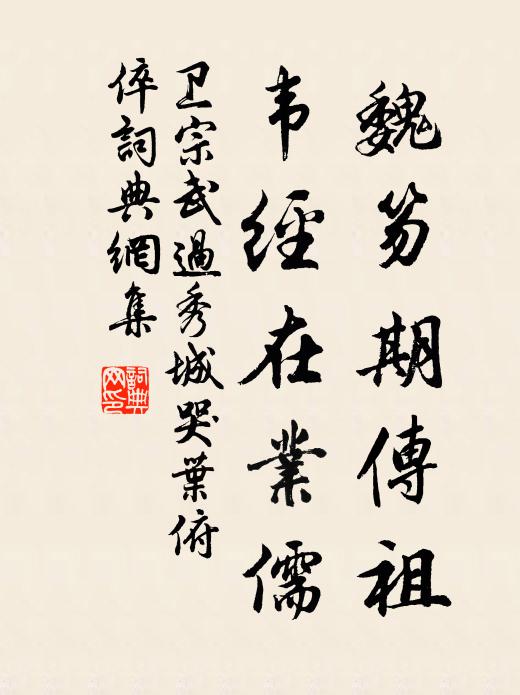 魏笏期傳祖
韦經在業儒
卫宗武過秀城哭葉俯
倅詞典網集
詞典網印